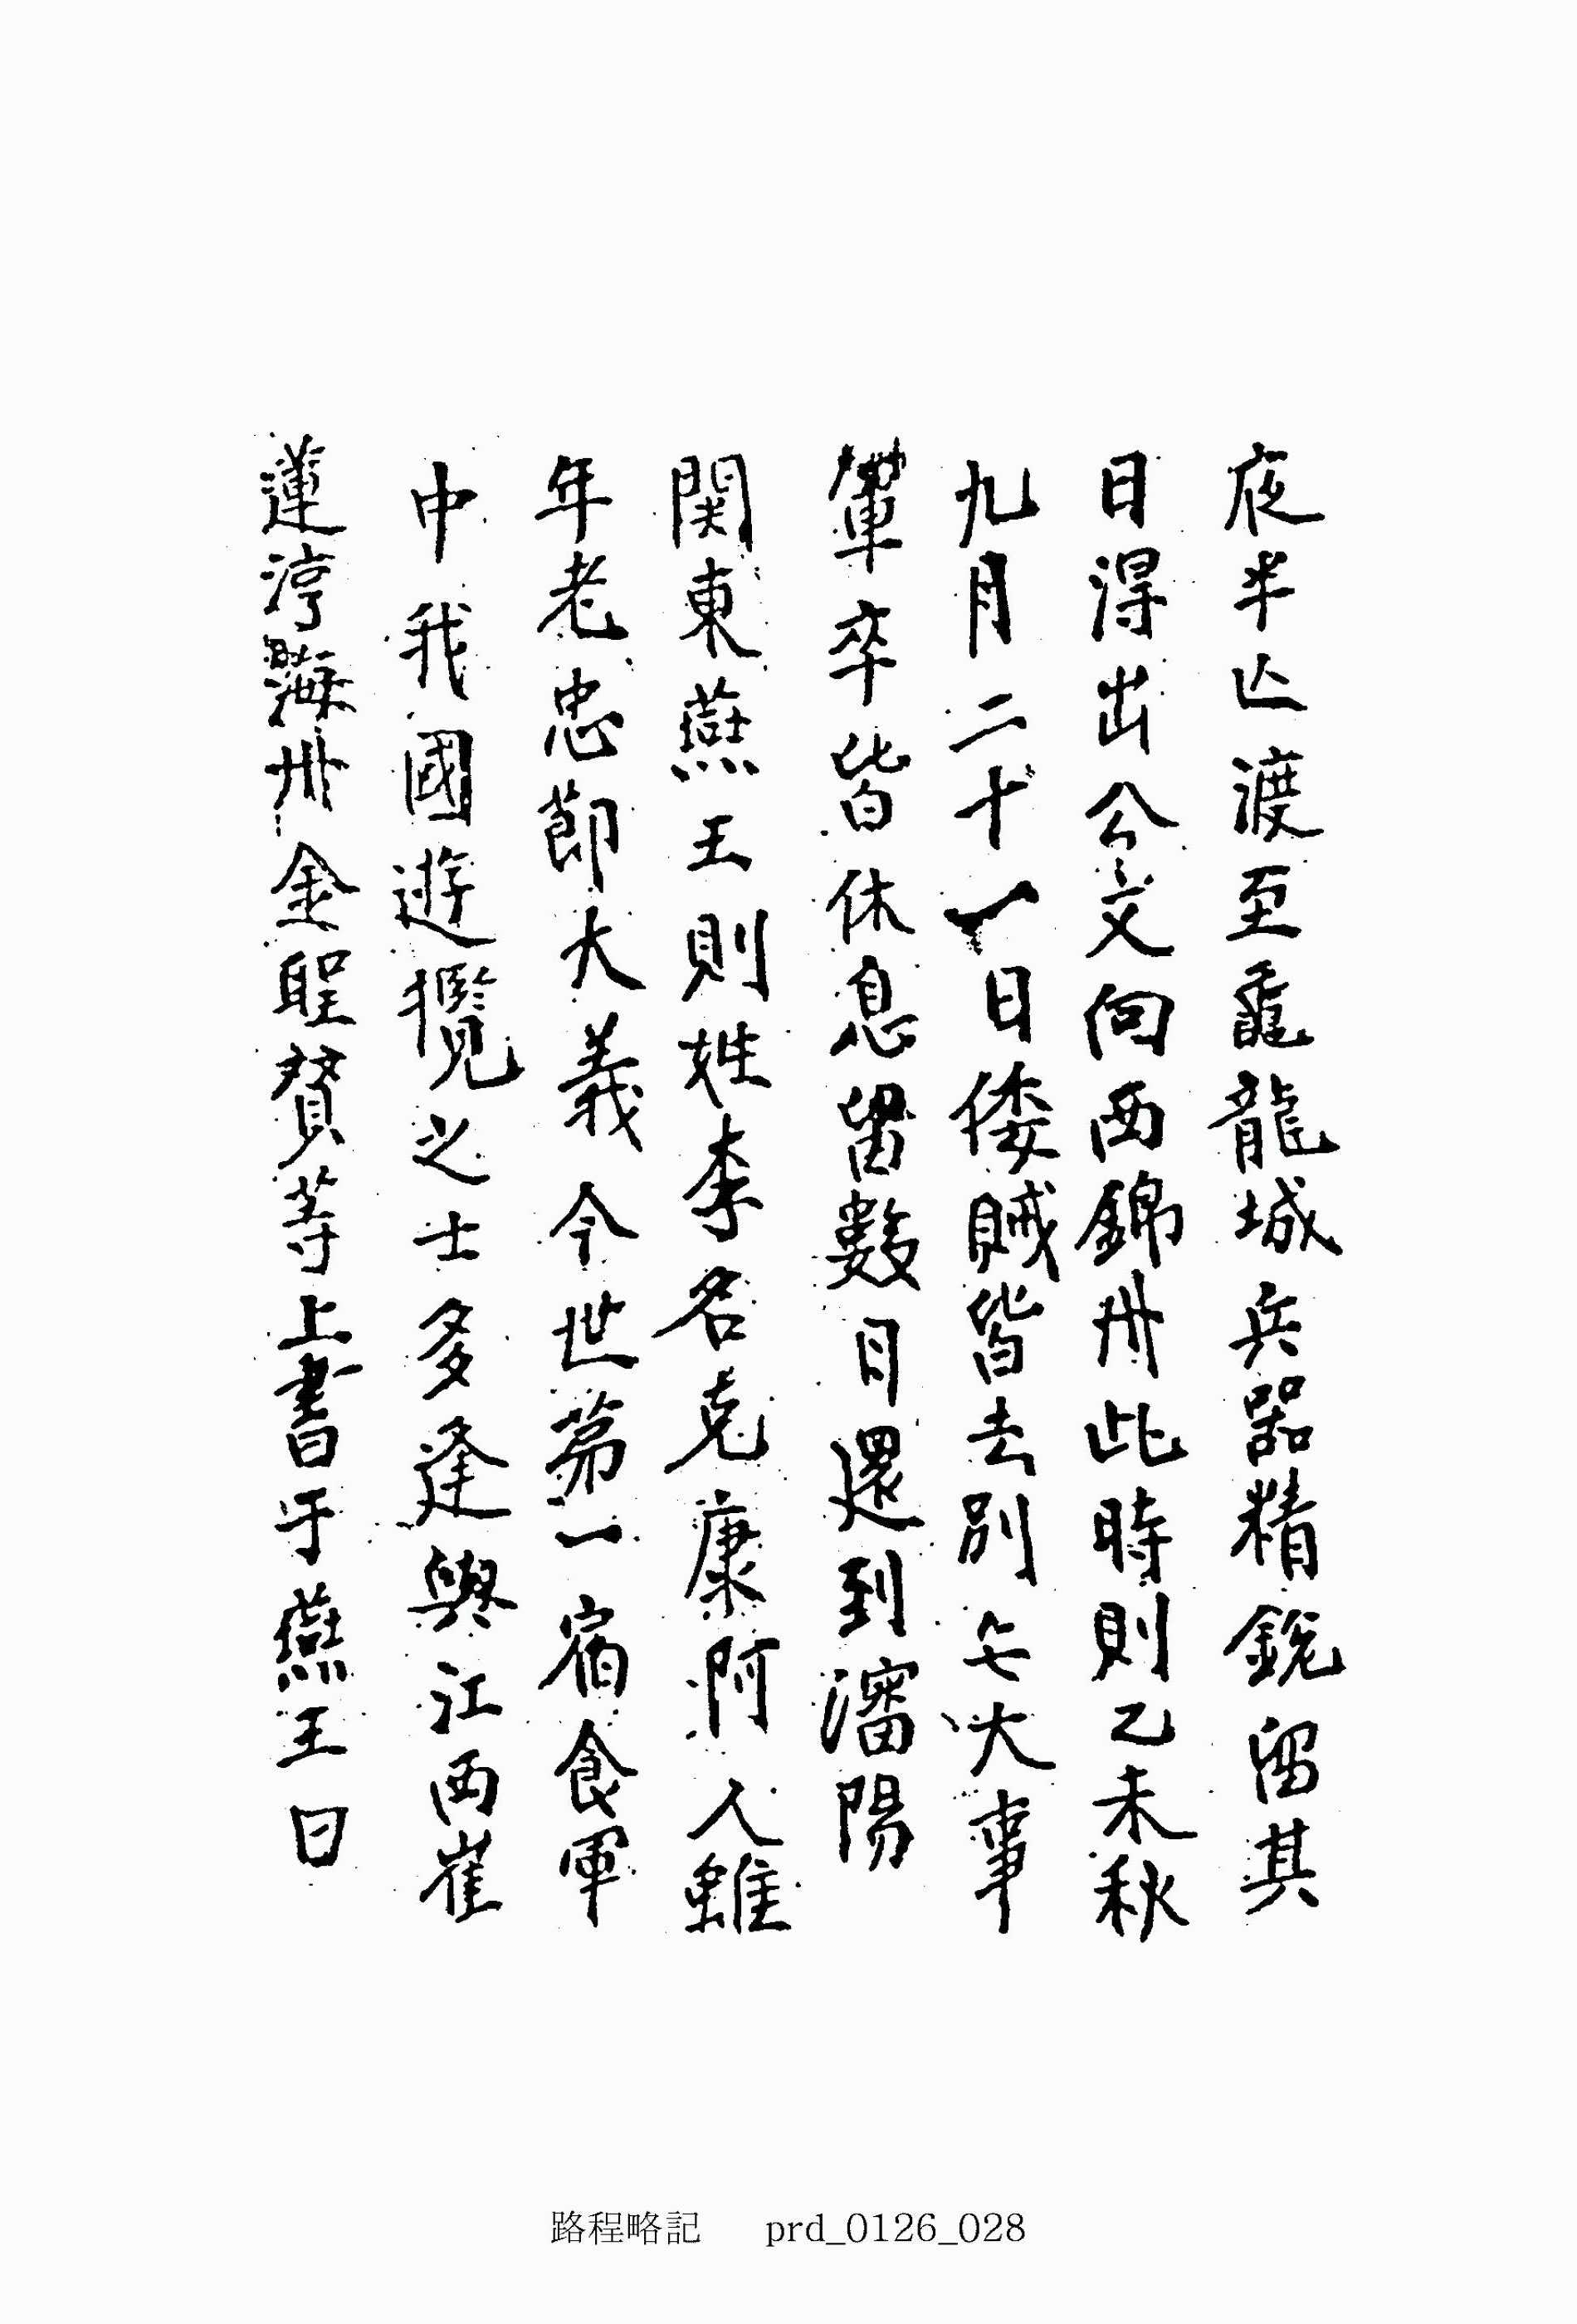 夜半亡渡至黽龍城兵器精銳留其
日得出公文向西錦州此時則乙未秋
九月二十一日倭賊皆去別無大事
軍卒皆休息留數日還到瀋陽
関東燕王則姓李名克康阿人雖
年老忠節大義今世第一宿食軍
中我國遊覽之士多逢與江西崔
蓮渟海州金聖贊等上書于燕王曰
路程略記 prd_0126_028